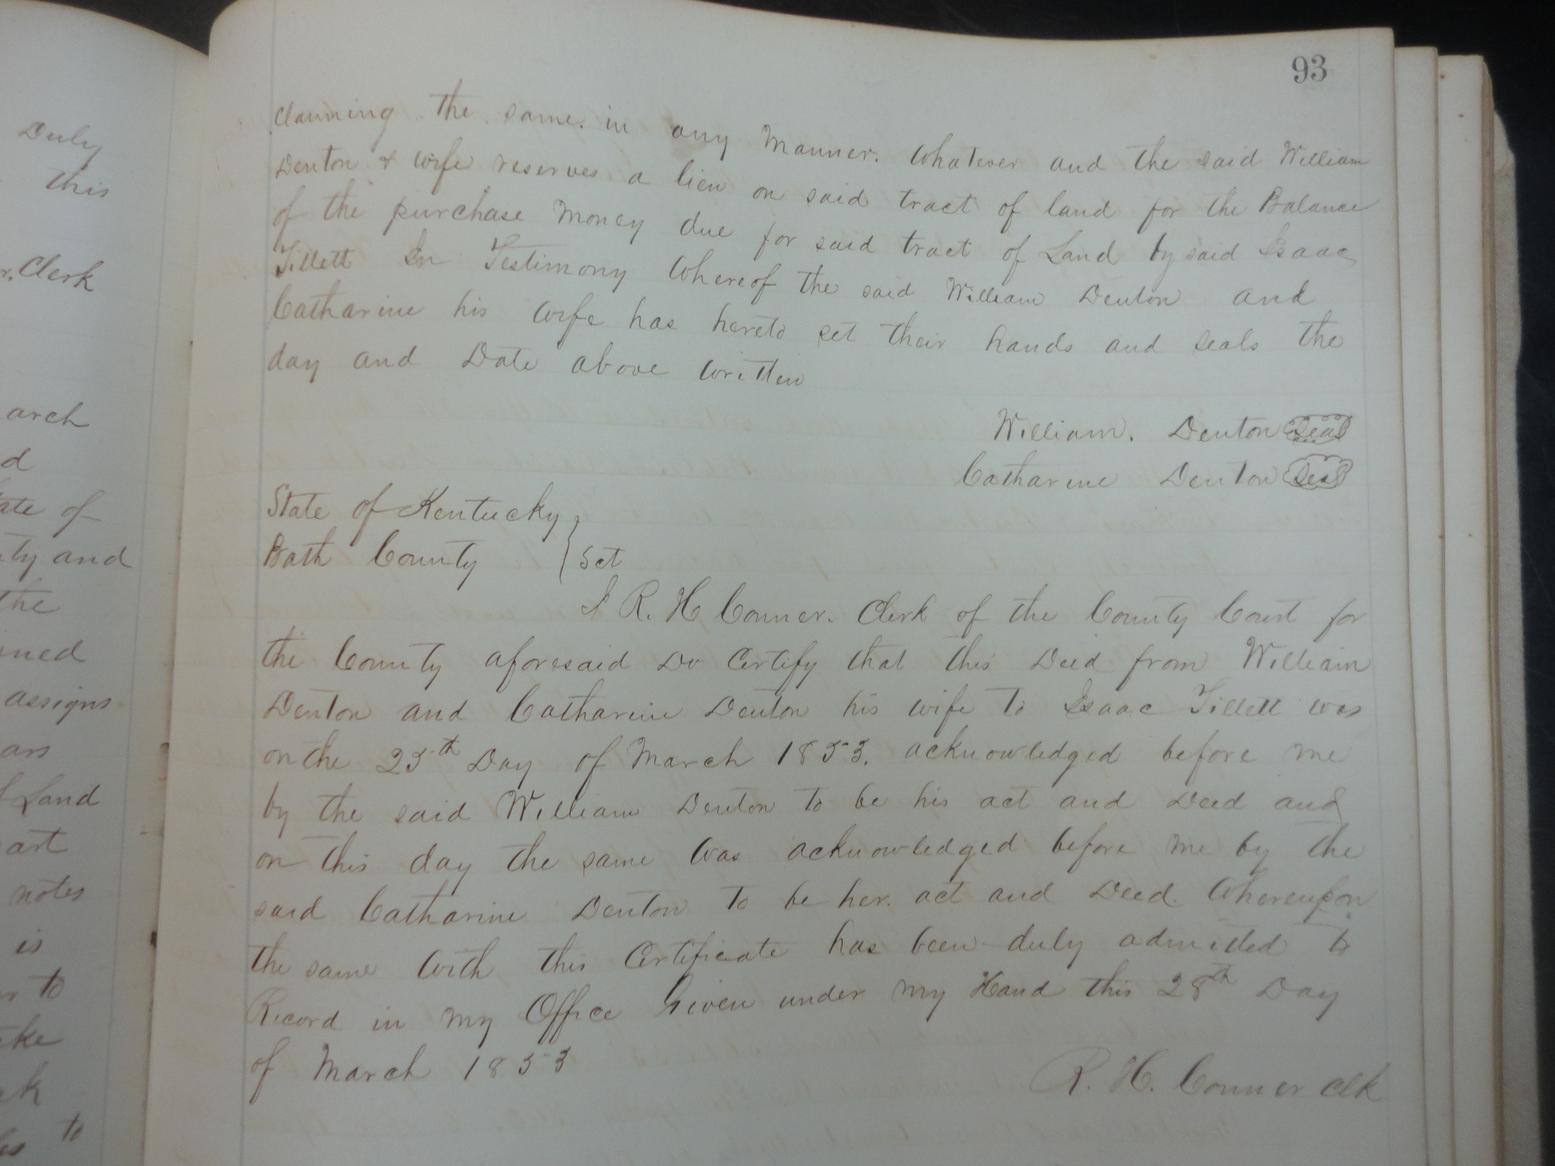 Duly
this
r. Clerk
arch
d
ate of
ty and
the
ined
assigns
ars
f Land
art
notes
is
or to
ke
to
93
claiming the same. in any Manner. Whatever and the said William
Denton & wife reserves a lien on said tract of land for the Balance
of the purchase Money due for said tract of Land by said Isaac
Tillett In Testimony Whereof the said William Denton and
Catharine his wife has hereto set their hands and seals the
day and Date above written
William. Denton Seal
Catharine Denton Seal
State of Kentucky }
Bath County } Sct
I R. H Conner. Clerk of the County Court for
the County aforesaid Do Certify that this Deed from William
Denton and Catharine Denton his wife to Isaac Tillett was
on the 25th Day of March 1853. acknowledged before me
by the said William Denton to be his act and Deed and
on this day the same was acknowledged before me by the
said Catharine Denton to be her. act and Deed. Whereupon
the same with this Certificate has been duly admitted to
Record in my Office Given under my Hand this 28th Day
of March 1853
R. H. Conner clk